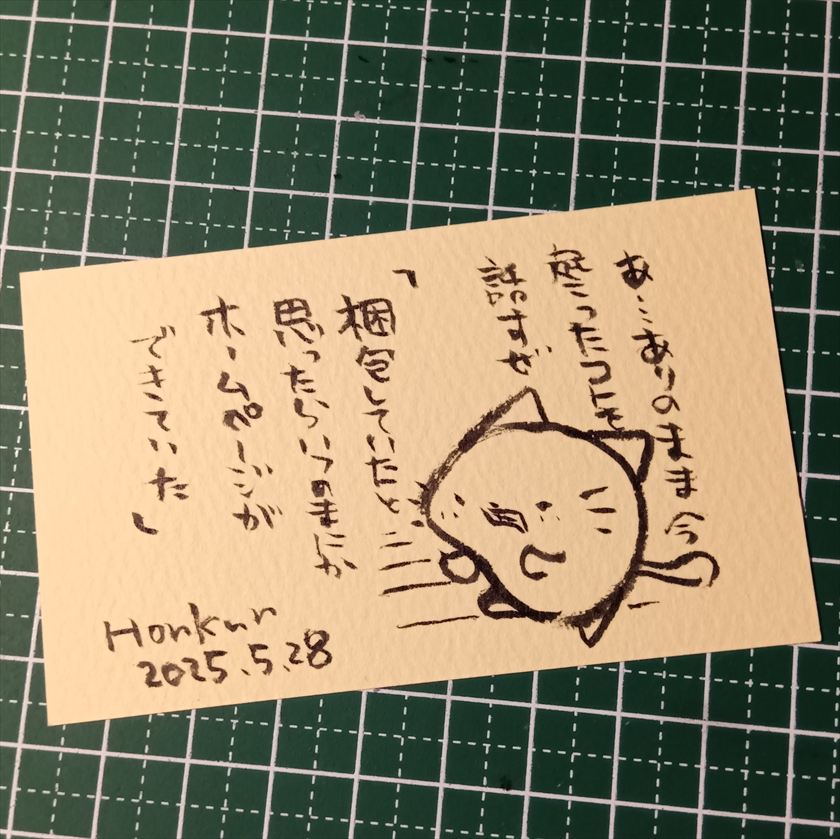 あ…ありのまま今
起こったコトを
話すぜ
「梱包していたと
思ったらいつのまにか
ホームページが
できていた」
Honkun
2025.5.28